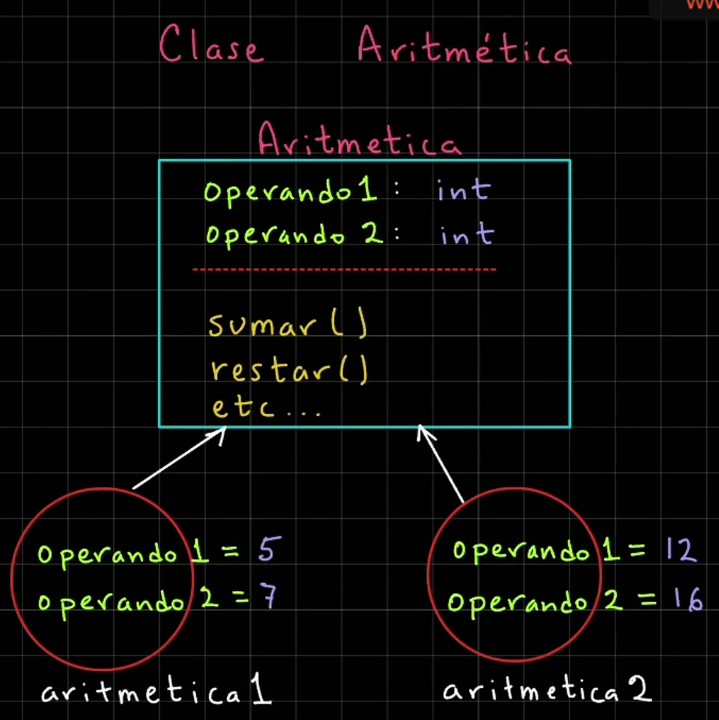 Clase Aritmética
Aritmetica
operando1: int
operando 2: int
sumar()
restar()
etc...
operando 1 = 5
operando 2 = 7
aritmetica1
operando 1 = 12
operando 2 = 16
aritmetica2